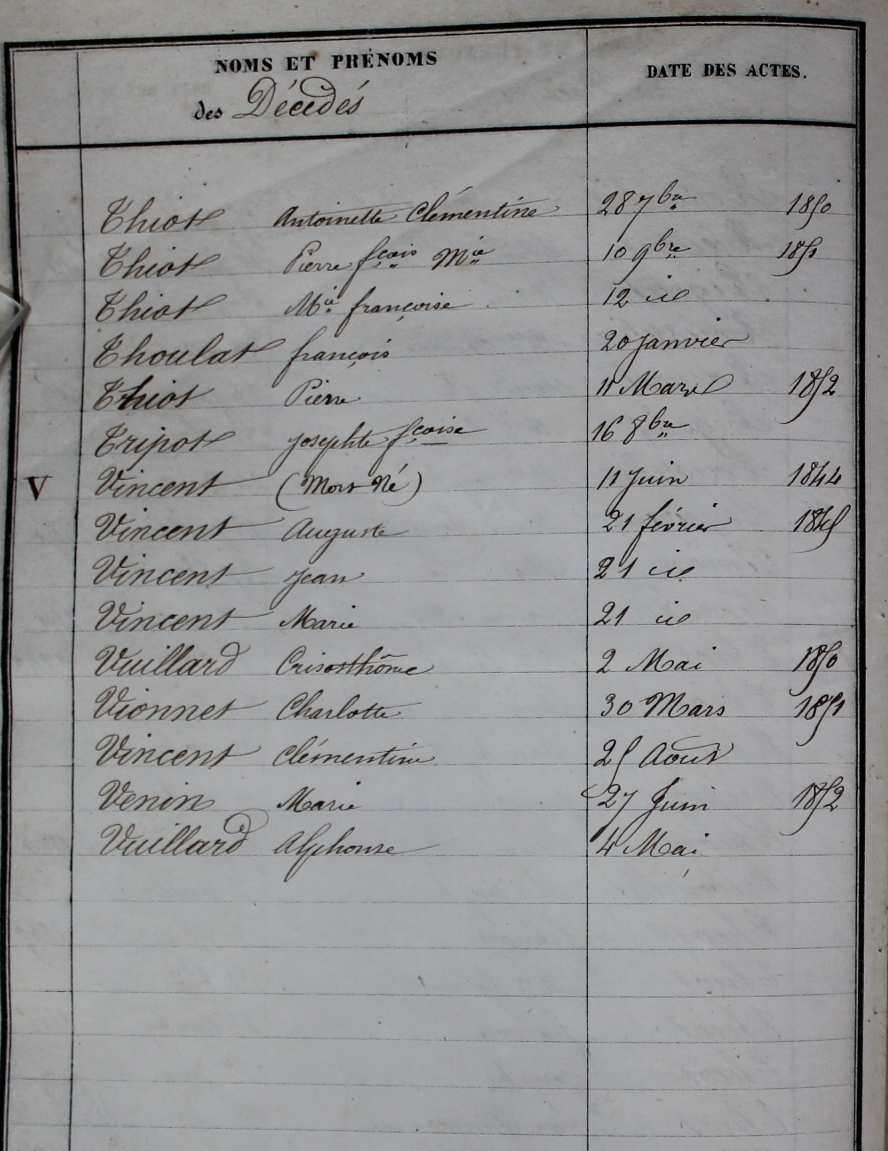 NOMS ET PRÉNOMS
des Décédés
DATE DES ACTES.
Thiot Antoinette Clémentine 28 7bre 1850
Thiot Pierre fçois Mie 10 9bre 1851
Thiot Mie françoise 12 id
Thoulat françois 20 Janvier
Thiot Pierre 11 Mars 1852
Tripot Josephte fçoise 16 8bre
V Vincent (Mort Né) 11 Juin 1844
Vincent Auguste 21 février 1845
Vincent Jean 21 id
Vincent Marie 21 id
Vuillard Crisosthôme 2 Mai 1850
Vionnet Charlotte 30 Mars 1851
Vincent Clémentine 25 Août
Venin Marie 27 Juin 1852
Vuillard Alphonse 4 Mai